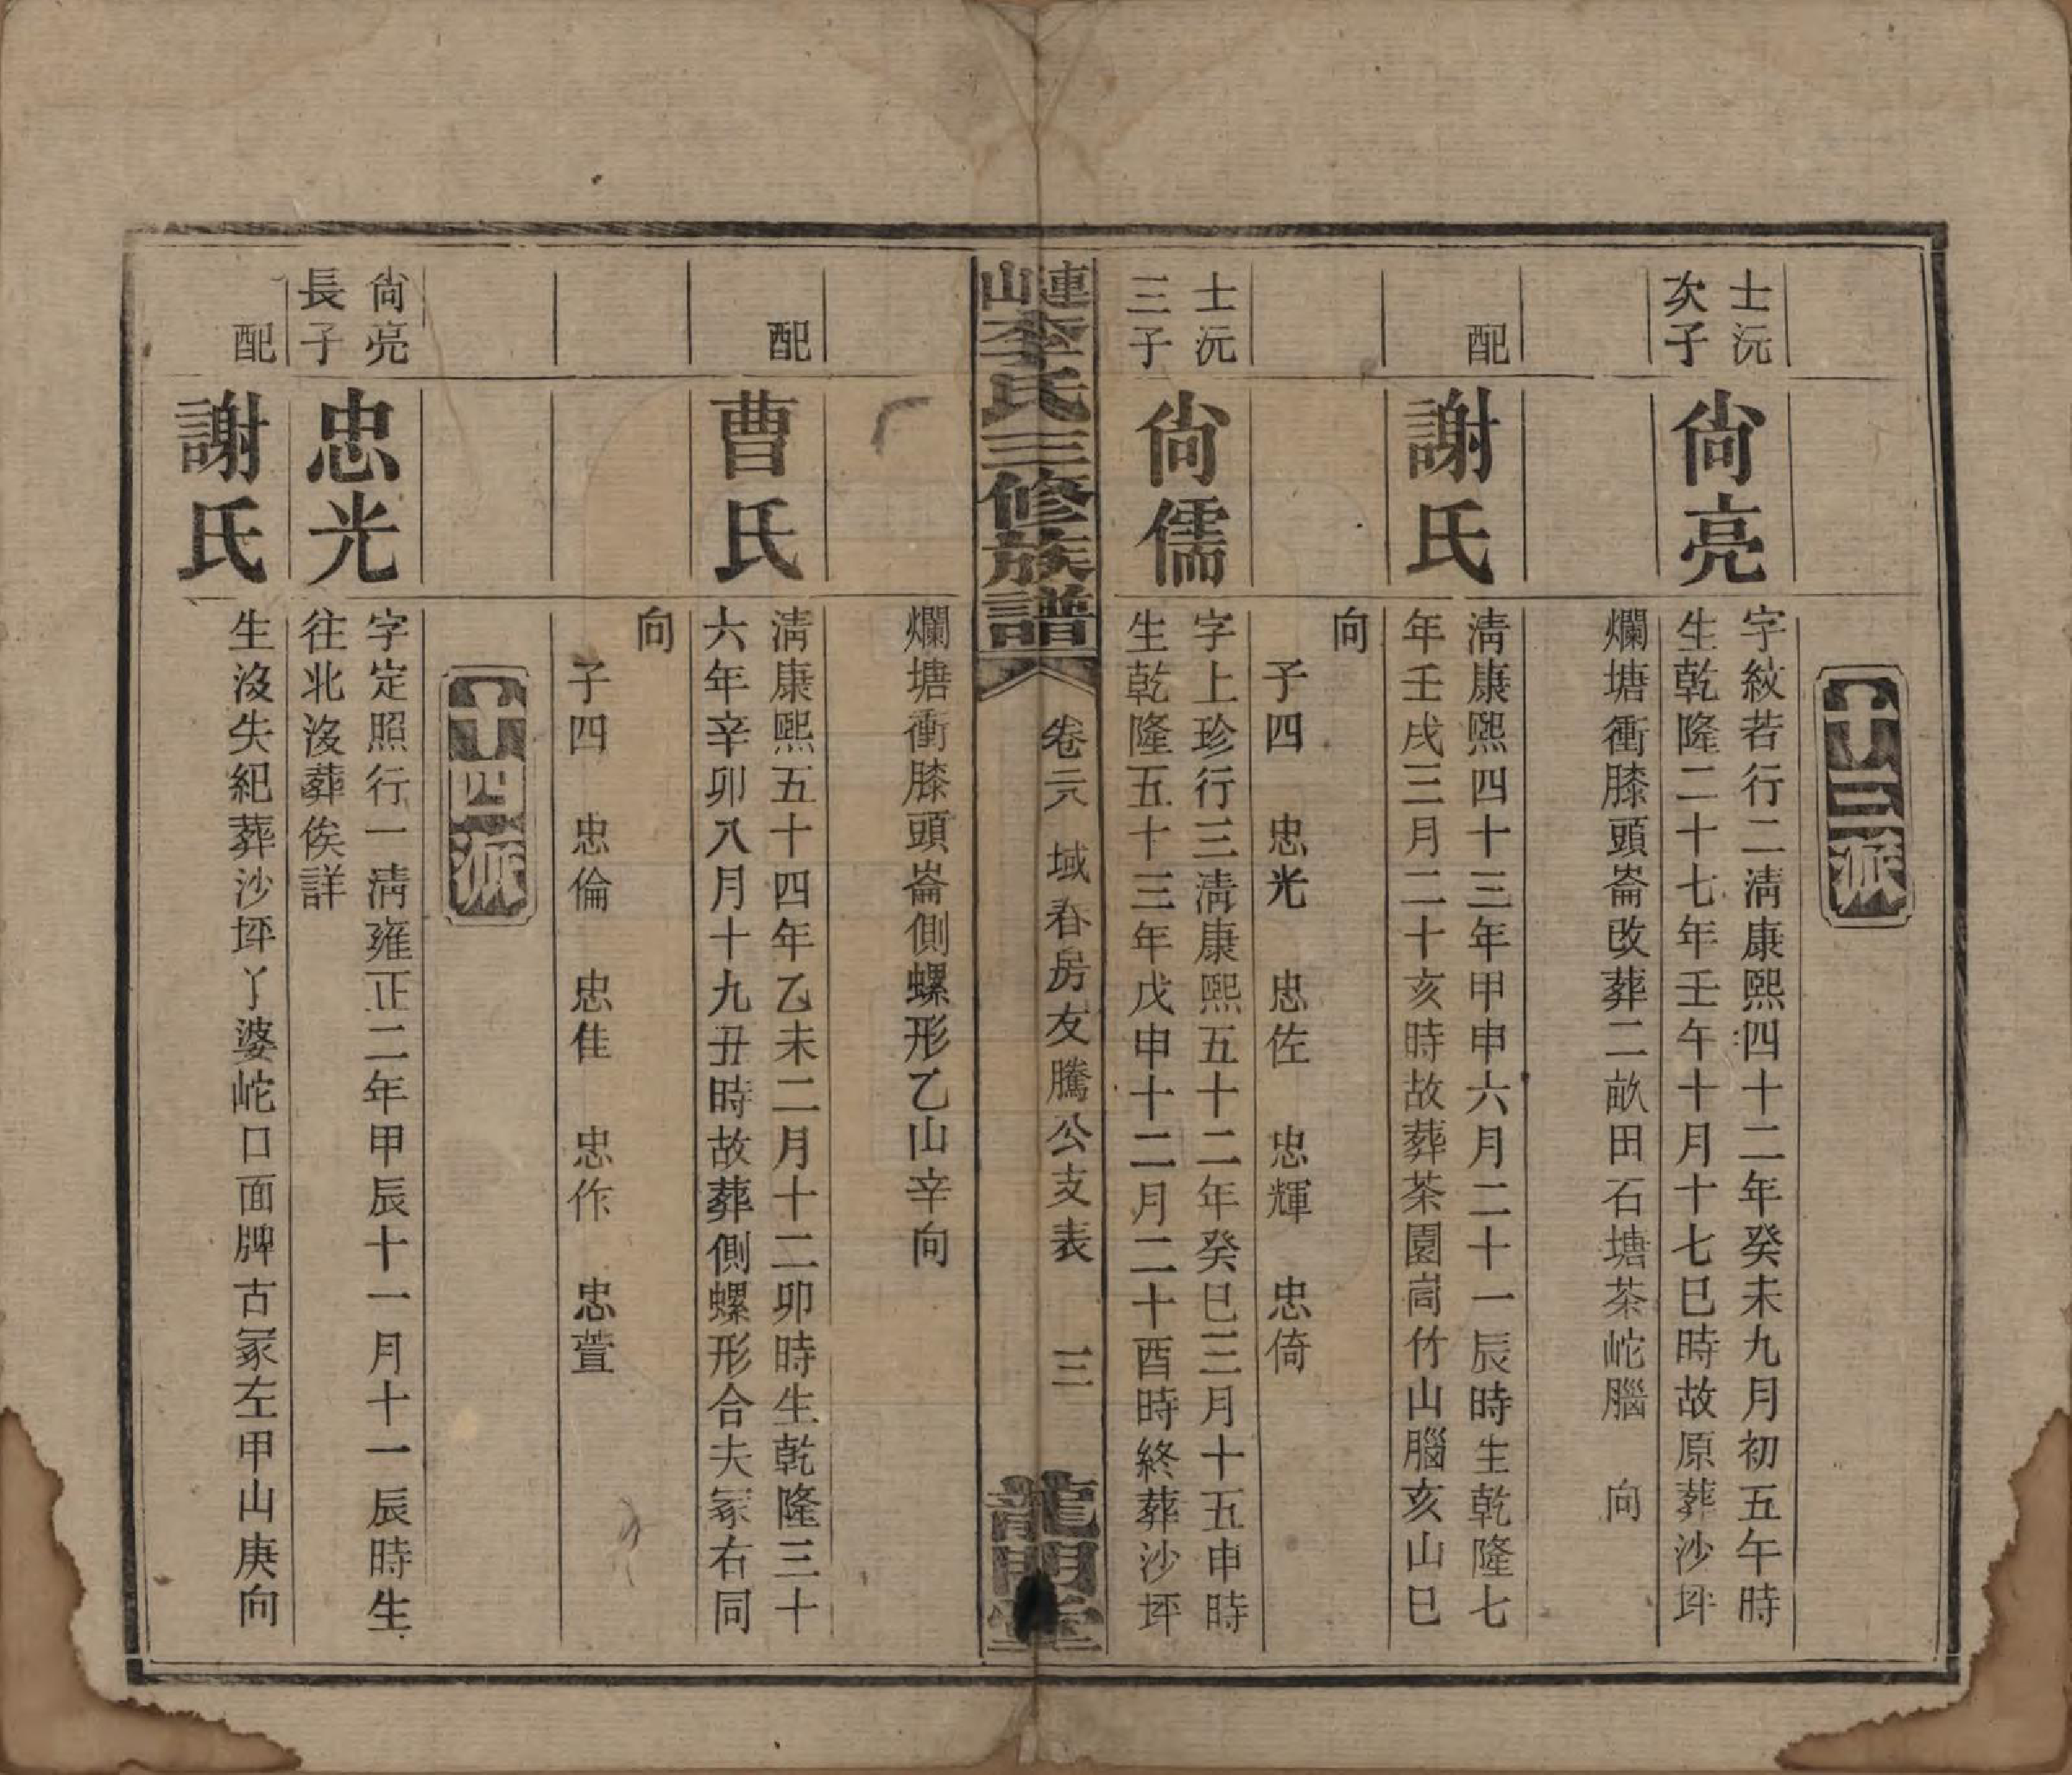 十三派
士沅
次子
尙亮
字紋若行二淸康熙四十二年癸未九月初五午時
生乾隆二十七年壬午十月十七巳時故原葬沙坪
爛塘衝膝頭崙改葬二畝田石塘茶岮腦　向
配
謝氏
淸康熙四十三年甲申六月二十一辰時生乾隆七
年壬戌三月二十亥時故葬茶園崗竹山腦亥山巳
向
子四　忠光　忠佐　忠輝　忠倚
士沅
三子
尙儒
字上珍行三淸康熙五十二年癸巳三月十五申時
生乾隆五十三年戊申十二月二十酉時終葬沙坪
連山李氏三修族譜
卷六　域春房友騰公支表　三
龍門堂
爛塘衝膝頭崙側螺形乙山辛向
配
曹氏
淸康熙五十四年乙未二月十二卯時生乾隆三十
六年辛卯八月十九丑時故葬側螺形合夫冢右同
向
子四　忠倫　忠佳　忠作　忠萱
十四派
尙亮
長子
忠光
字定照行一淸雍正二年甲辰十一月十一辰時生
往北沒葬俟詳
配
謝氏
生沒失紀葬沙坪丫婆岮口面牌古冢左甲山庚向